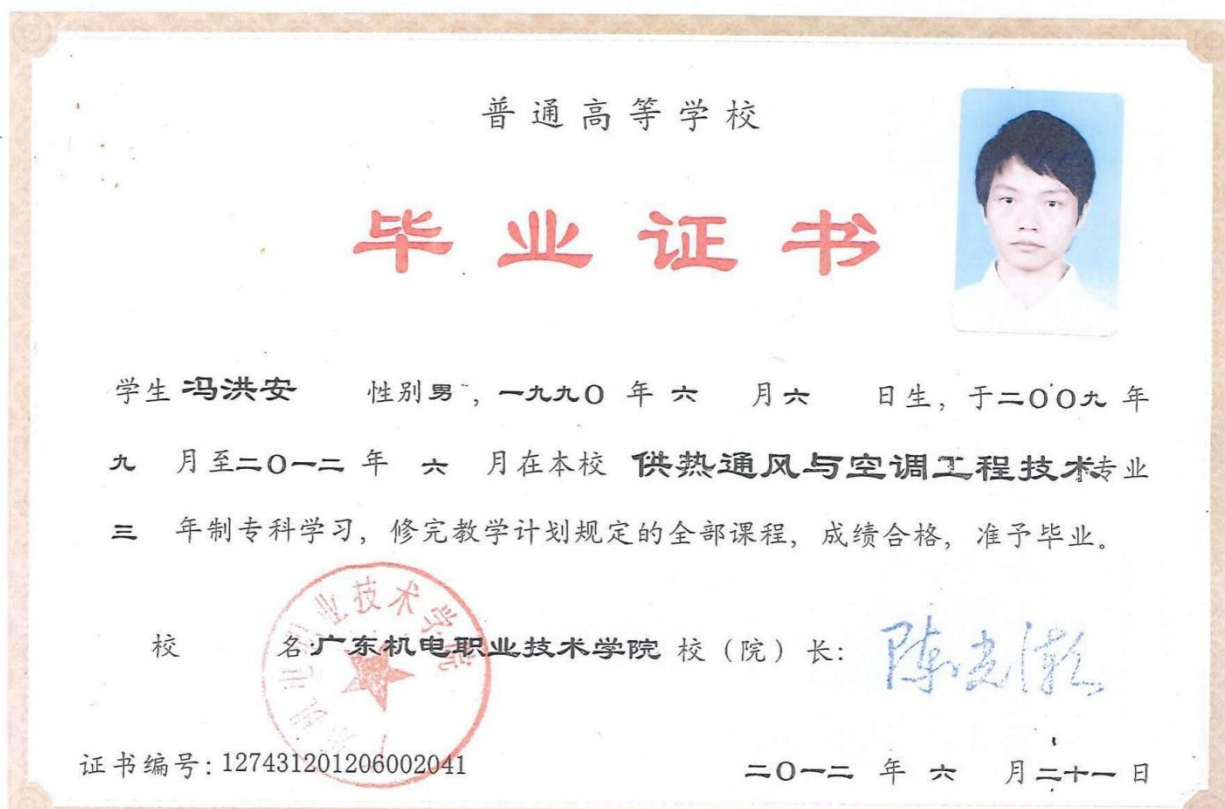 普通高等学校
毕业证书
学生 冯洪安 性别男，一九九〇 年 六 月六 日生，于二〇〇九 年
九 月至二〇一二 年 六 月在本校 供热通风与空调工程技术专业
三 年制专科学习，修完教学计划规定的全部课程，成绩合格，准予毕业。
校 名:广东机电职业技术学院 校（院）长：
证书编号：127431201206002041
二〇一二 年 六 月二十一 日